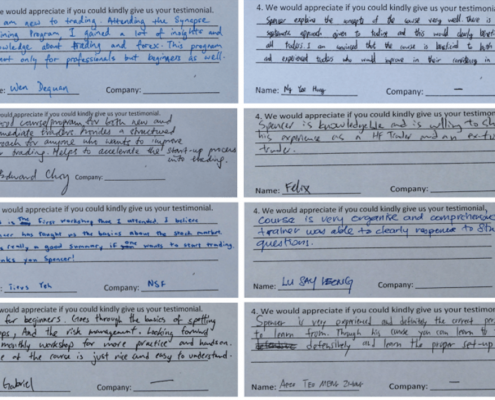 we would appreciate if you could kindly give us your testimonial.
am new to trading. Attending the Synapse
ning Program, I gained a lot of insights and
wledge about trading and forex. This program
not only for professionals but beginners as well.
e: Wen Dequan Company:
4. We would appreciate if you could kindly give us your testimonial.
Spencer explains the concepts of the course very well. There is
systematic approach given to trading and this would clearly benefit
all traders. I am convinced that the course is beneficial to both
and experienced traders who would improve in their consistency in
Name: Company: —
would appreciate if you could kindly give us your testimonial.
course/program for both new and
mediate traders. Provides a structured
oach for anyone who wants to improve
trading. Helps to accelerate the start-up process
into trading.
Edward Choy Company:
4. We would appreciate if you could kindly give us your testimon
Spencer is knowledgeable and is willing to sh
his experience as a HF Trader and an ex-fu
trader.
Name: Felix Company:
would appreciate if you could kindly give us your testimonial.
is the first workshop that I attended. I believe
has taught us the basics about the stock market.
really a good summary if one wants to start trading.
nks you Spencer!
Company: NSF
4. We would appreciate if you could kindly give us your testimonial.
Course is very organise and comprehensi
trainer was able to clearly response to stu
questions.
Name: LU SAY KEONG Company:
would appreciate if you could kindly give us your testimonial.
for beginners. Goes through the basics of spotting
ps, And the risk management. Looking forward
monthly workshops for more practice and hands on.
e of the course is just nice and easy to understand.
Gabriel Company: —
4. We would appreciate if you could kindly give us your testimonial.
Spencer is very experienced and definitely the correct pers
to learn from. Through his course you can learn to
defensively and learn the proper set-up
Name: Company: —